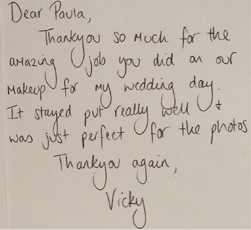 Dear Paula,
Thankyou so much for the
amazing job you did on our
makeup for my wedding day.
It stayed put really well +
was just perfect for the photos
Thankyou again,
Vicky